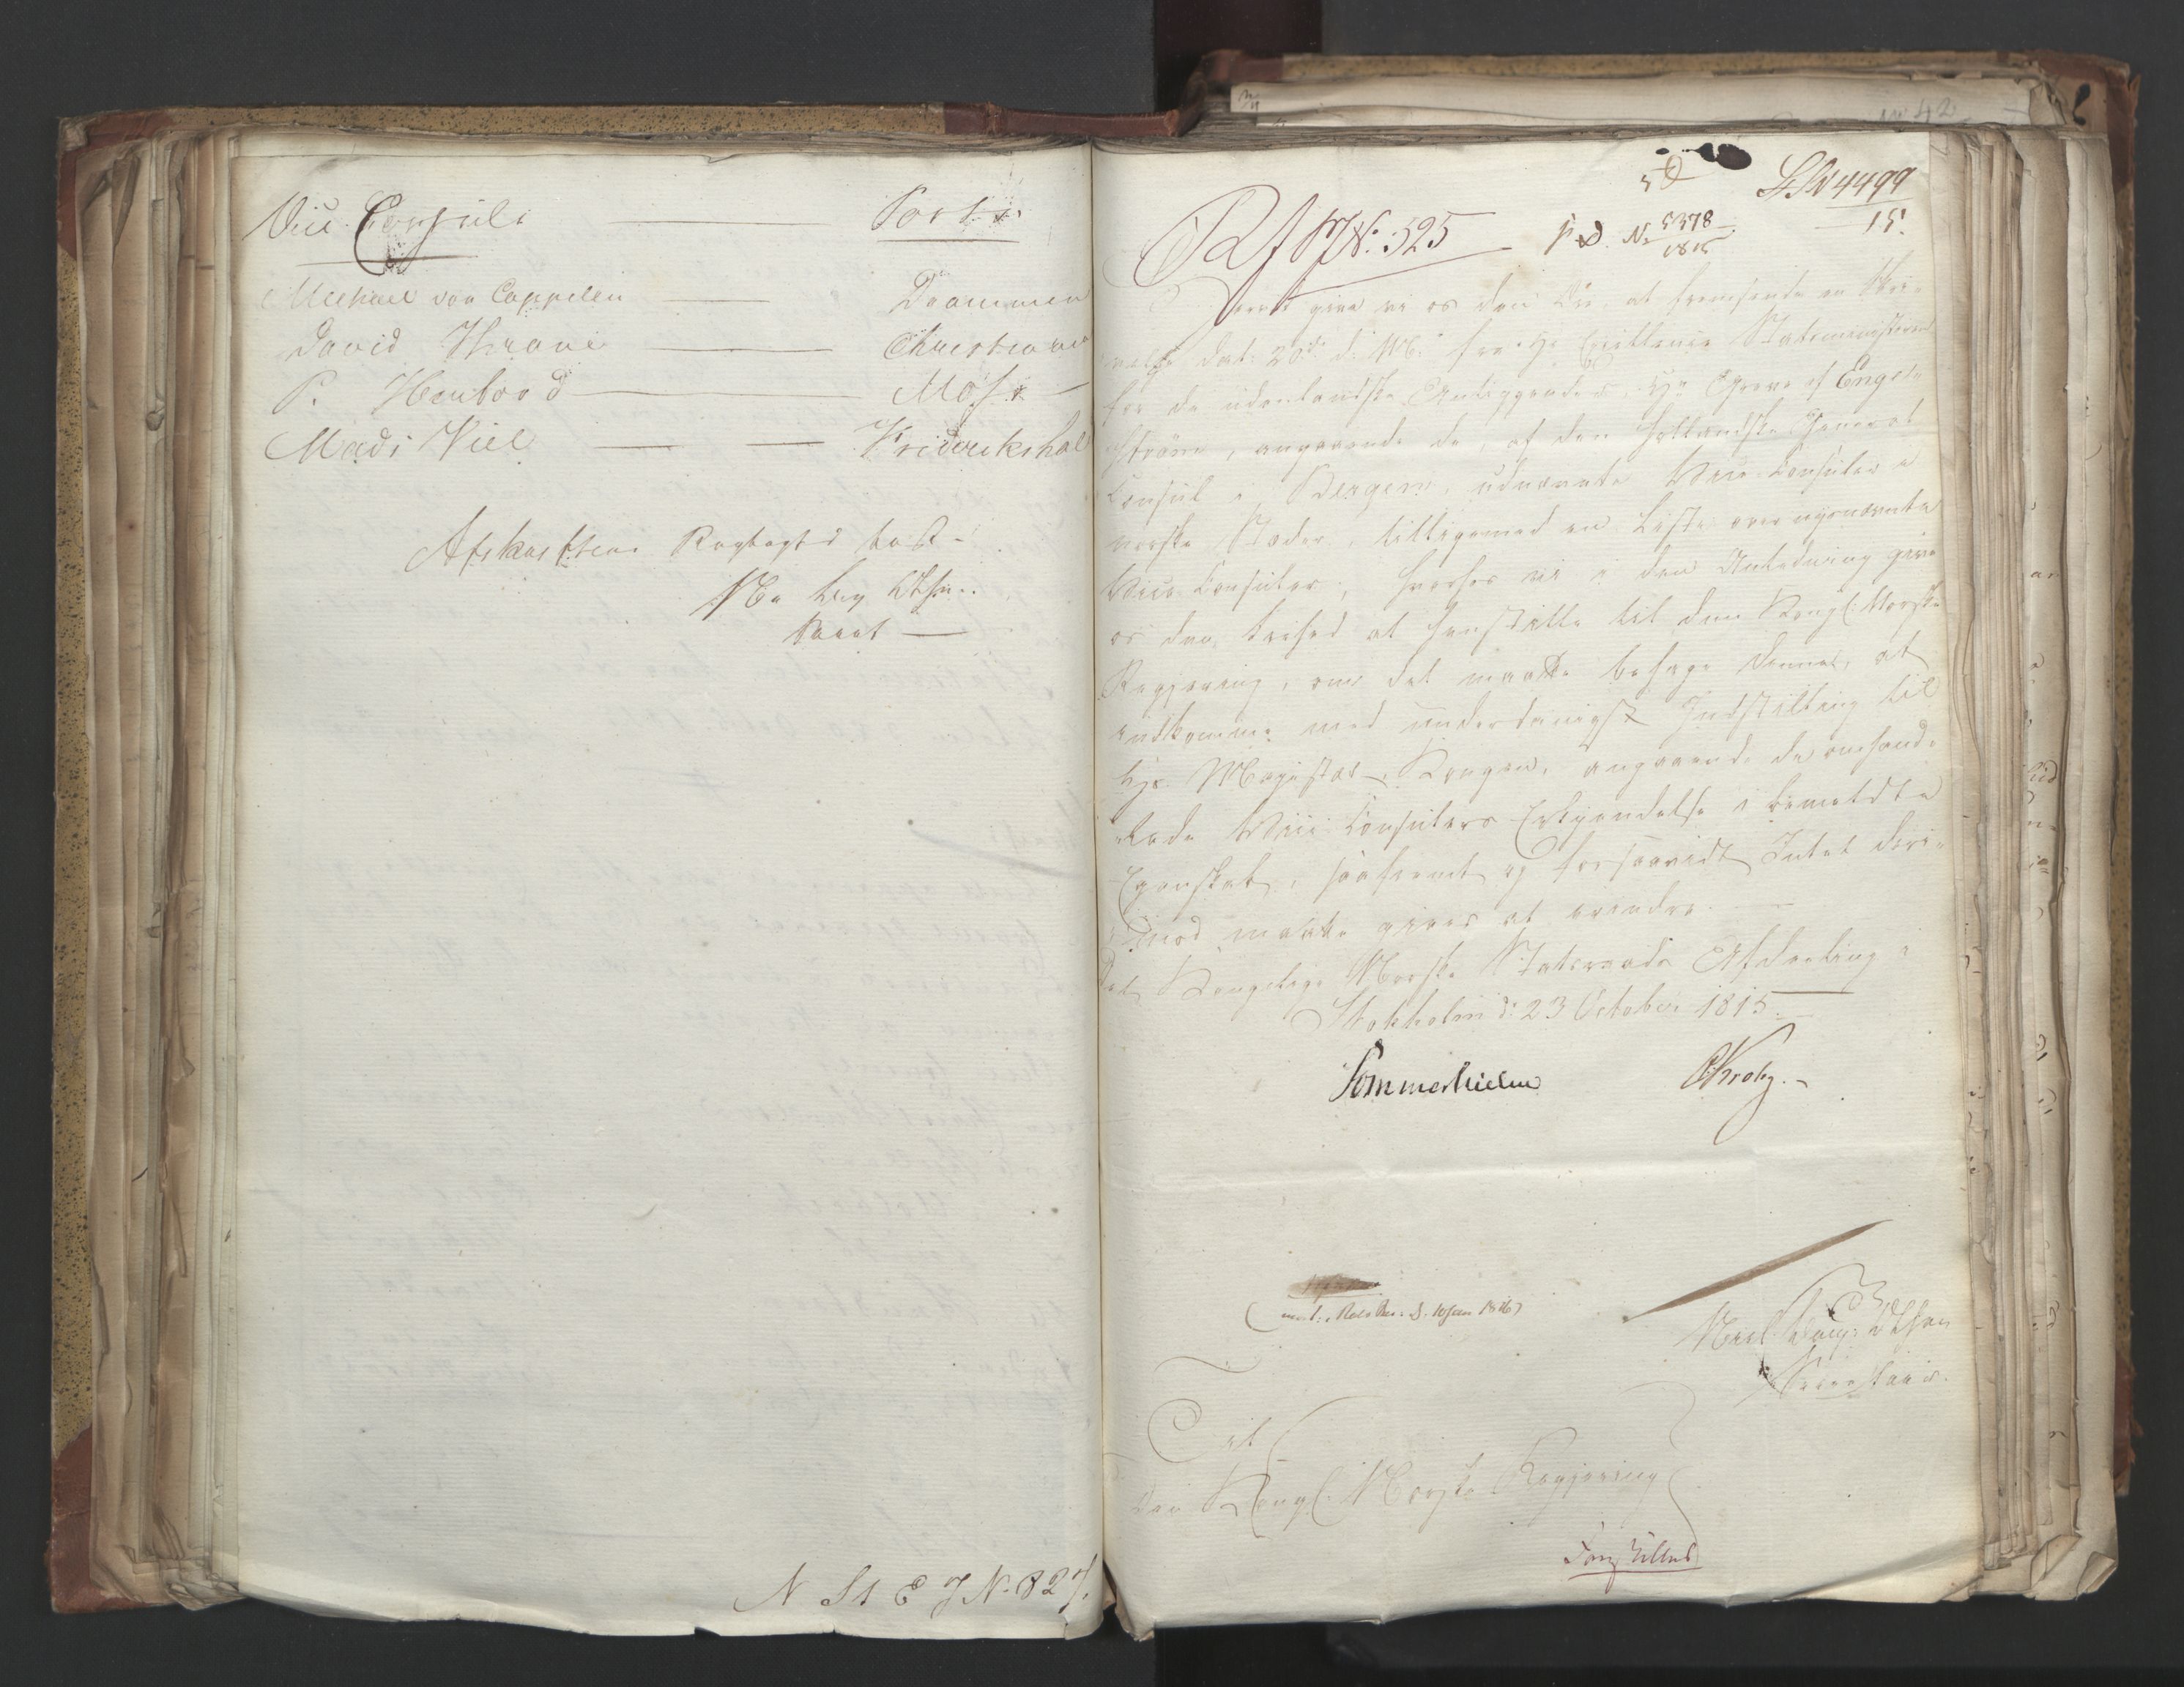 Vice Consuls — Ports
Michael von Cappelen — Drammen
David Thrane — Christiania
P. Herlbord — Moss
Mads Wiel — Friderikshal
Afskriftens Rigtighed
N St E J No 827.
42
LNo 4499
15.
No. 525
P. D. No 5378
1815
Herved give vi os den Ære at fremsende en Skri-
velse dat: 20de d: M: fra Hs Excellence Statsministeren
for de udenlandske Anliggender, Hr Greve af Enge-
strøm, angaaende de, af den hollandske General
Consul i Bergen, udnævnte Vice-Consuler i
norske Stæder, tilligemed en Liste over nysnævnte
Vice Consuler, hvorfor vi i den Anledning give
os den Frihed at henstille til den Kongl: Norske
Regjering, om det maatte behage denne, at
indkomme med underdanigst Indstilling til
Hs. Majestæt Kongen, angaaende de omhand-
lede Vice Consulers Erkjendelse i bemeldte
Egenskab, saafremt og forsaavidt Intet deri-
mod maatte gives at erindre.
Det Kongelige Norske Statsraads Afdeling i
Stokholm d: 23 October 1815.
Sommerhielm
Krohg.
Til
Den Kongl: Norske Regjering